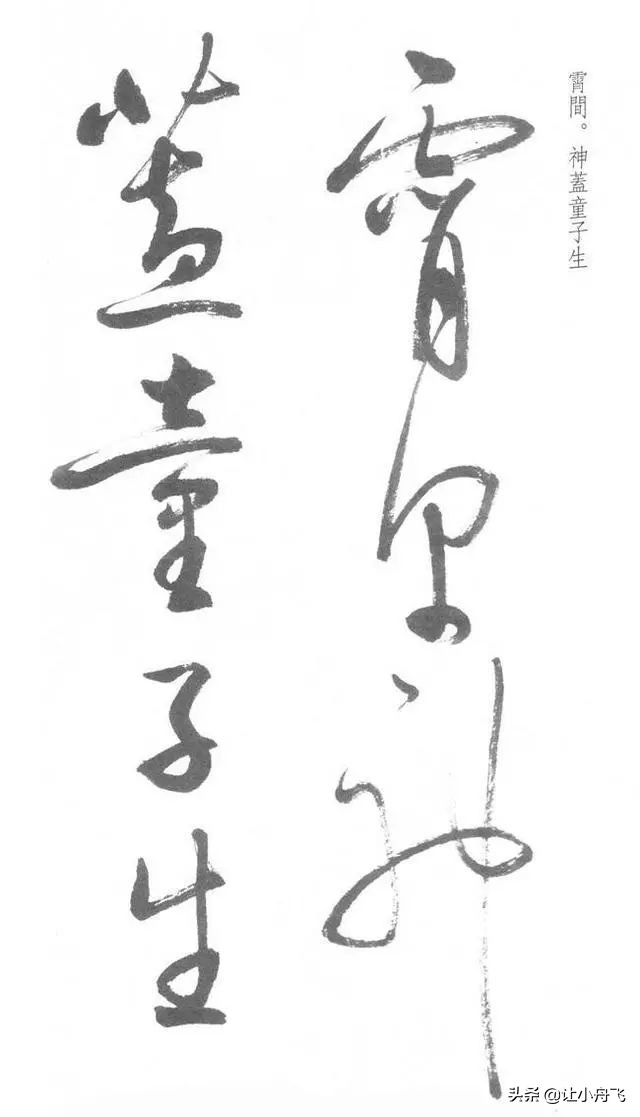 霄間。神蓋童子生
霄間神
蓋童子生
头条@让小舟飞